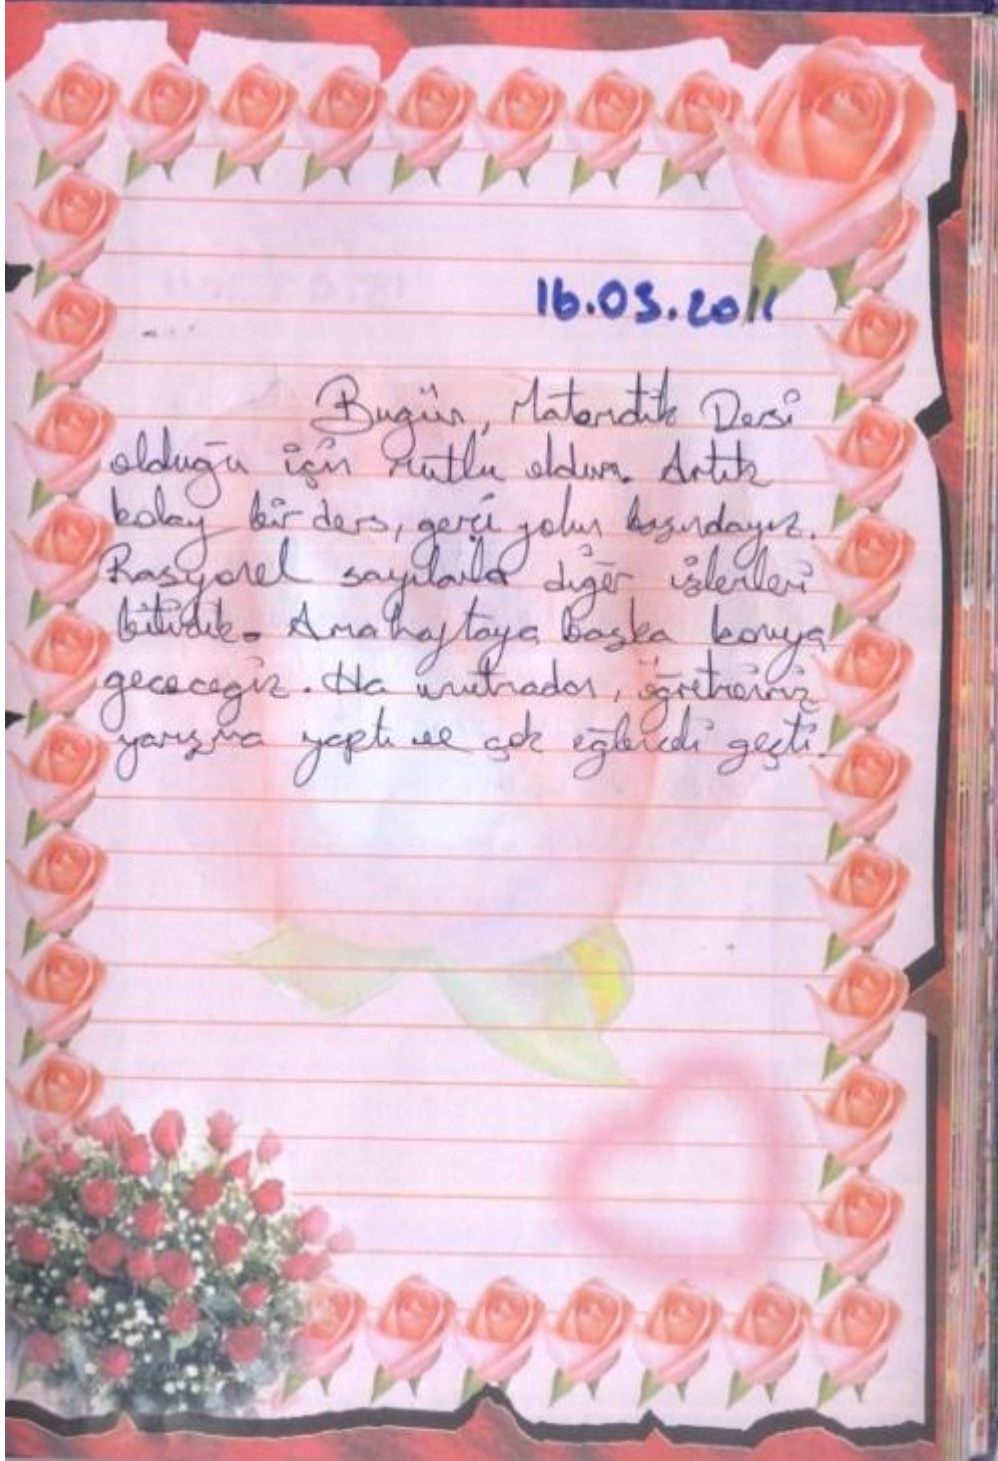 16.03.2011
Bugün, Matematik Dersi
olduğu için mutlu oldum. Artık
kolay bir ders, gerçi yolun başındayız.
Rasyonel sayılarla diğer işlemleri
bitirdik. Ama haftaya başka konuya
geçeceğiz. Ha unutmadan, öğretmenimiz
yarışma yaptı ve çok eğlenceli geçti.